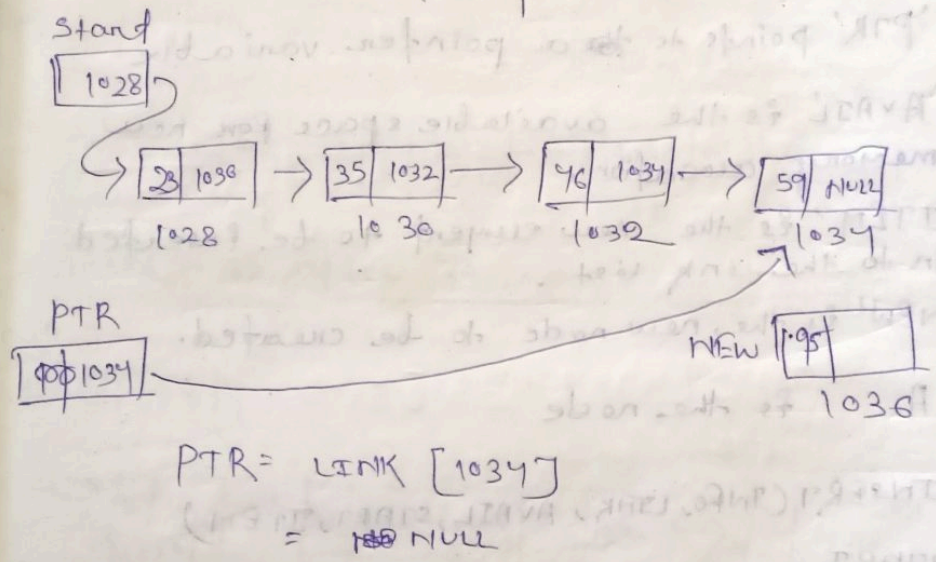 Start
1028
23 1036 35 1032 46 1034 59 NULL
1028 1030 1032 1034
PTR
1034
NEW 95
1036
PTR = LINK [1034]
= NULL